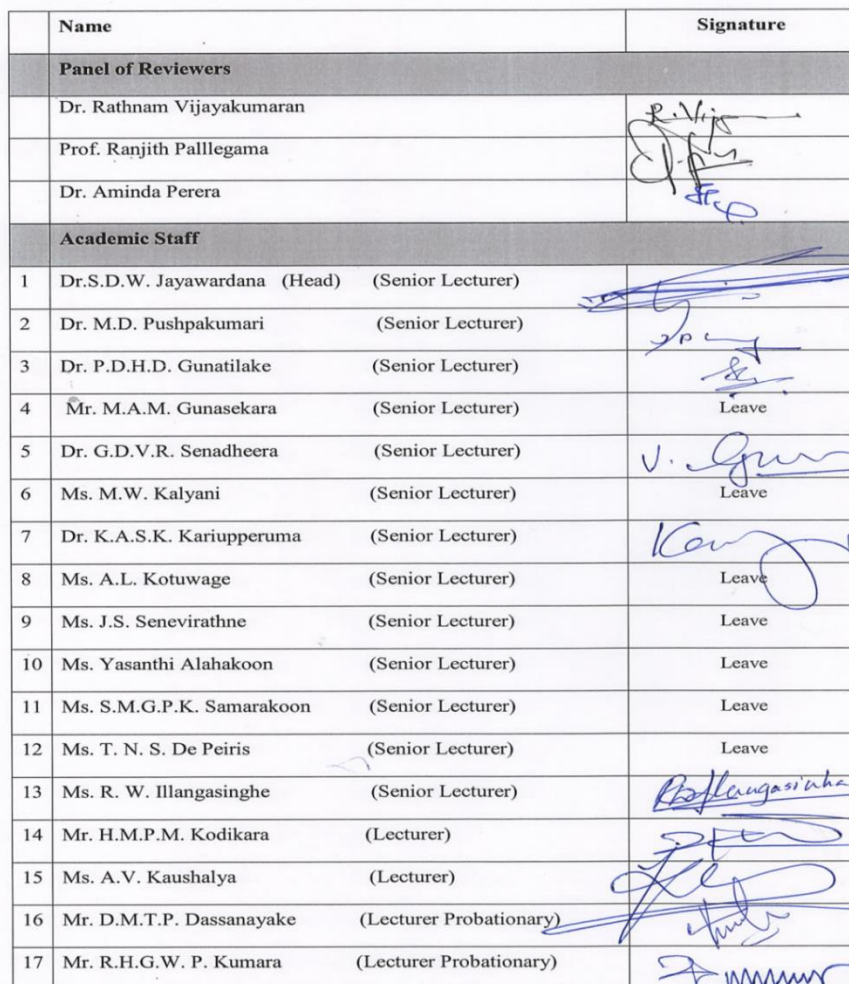 Name Signature
Panel of Reviewers
Dr. Rathnam Vijayakumaran R. Vij
Prof. Ranjith Palllegama
Dr. Aminda Perera
Academic Staff
1 Dr.S.D.W. Jayawardana (Head) (Senior Lecturer)
2 Dr. M.D. Pushpakumari (Senior Lecturer)
3 Dr. P.D.H.D. Gunatilake (Senior Lecturer)
4 Mr. M.A.M. Gunasekara (Senior Lecturer) Leave
5 Dr. G.D.V.R. Senadheera (Senior Lecturer)
6 Ms. M.W. Kalyani (Senior Lecturer) Leave
7 Dr. K.A.S.K. Kariupperuma (Senior Lecturer)
8 Ms. A.L. Kotuwage (Senior Lecturer) Leave
9 Ms. J.S. Senevirathne (Senior Lecturer) Leave
10 Ms. Yasanthi Alahakoon (Senior Lecturer) Leave
11 Ms. S.M.G.P.K. Samarakoon (Senior Lecturer) Leave
12 Ms. T. N. S. De Peiris (Senior Lecturer) Leave
13 Ms. R. W. Illangasinghe (Senior Lecturer)
14 Mr. H.M.P.M. Kodikara (Lecturer)
15 Ms. A.V. Kaushalya (Lecturer)
16 Mr. D.M.T.P. Dassanayake (Lecturer Probationary)
17 Mr. R.H.G.W. P. Kumara (Lecturer Probationary)